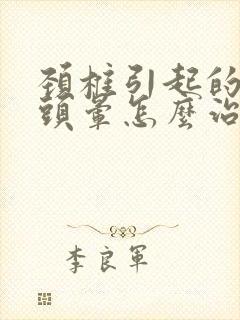 頚椎引起的
頭暈怎麼治
李良軍